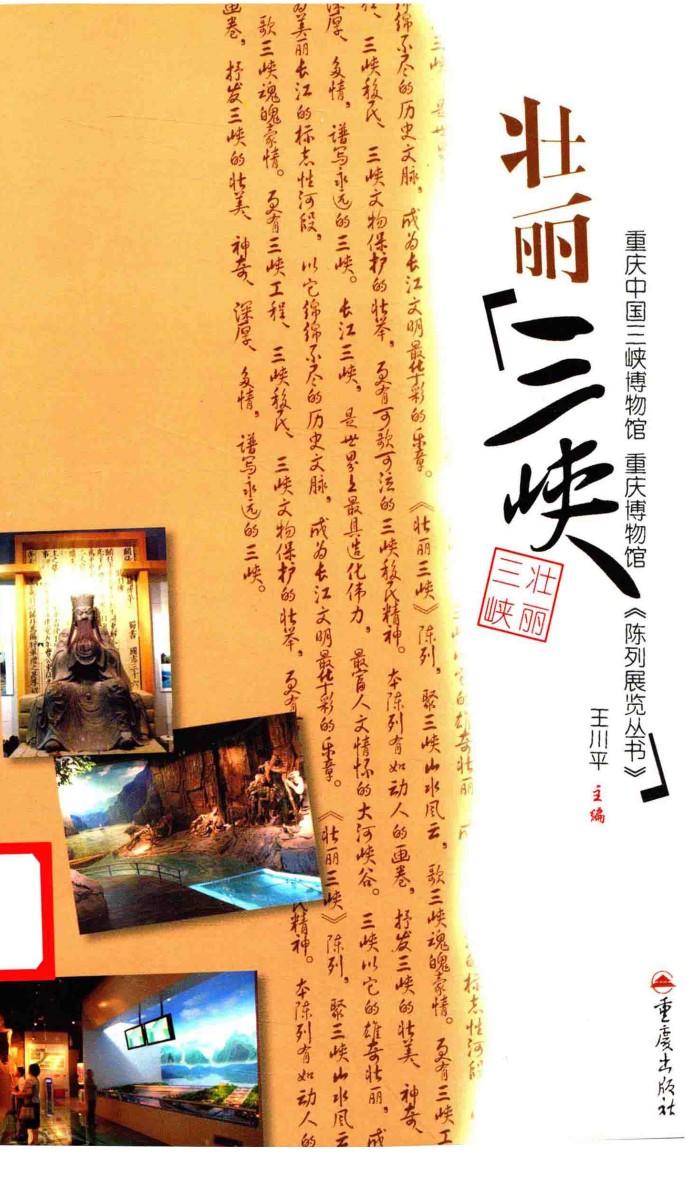 重庆中国三峡博物馆 重庆博物馆 《陈列展览丛书》
王川平 主编
壮丽
「三峡」
壮丽
三峡
重庆出版社
绵绵不尽的历史文脉，成为长江文明最华彩的乐章。《壮丽三峡》陈列，聚三峡山水风云，歌三峡魂魄豪情。更有三峡工
程、三峡移民、三峡文物保护的壮举，更有可歌可泣的三峡移民精神。本陈列有如动人的画卷，抒发三峡的壮美、神奇、
深厚、多情，谱写永远的三峡。长江三峡，是世界上最具造化伟力，最富人文情怀的大河峡谷。三峡以它的雄奇壮丽，成
为美丽长江的标志性河段，以它绵绵不尽的历史文脉，成为长江文明最华彩的乐章。《壮丽三峡》陈列，聚三峡山水风云
歌三峡魂魄豪情。更有三峡工程、三峡移民、三峡文物保护的壮举，更有民精神。本陈列有如动人的
画卷，抒发三峡的壮美、神奇、深厚、多情，谱写永远的三峡。